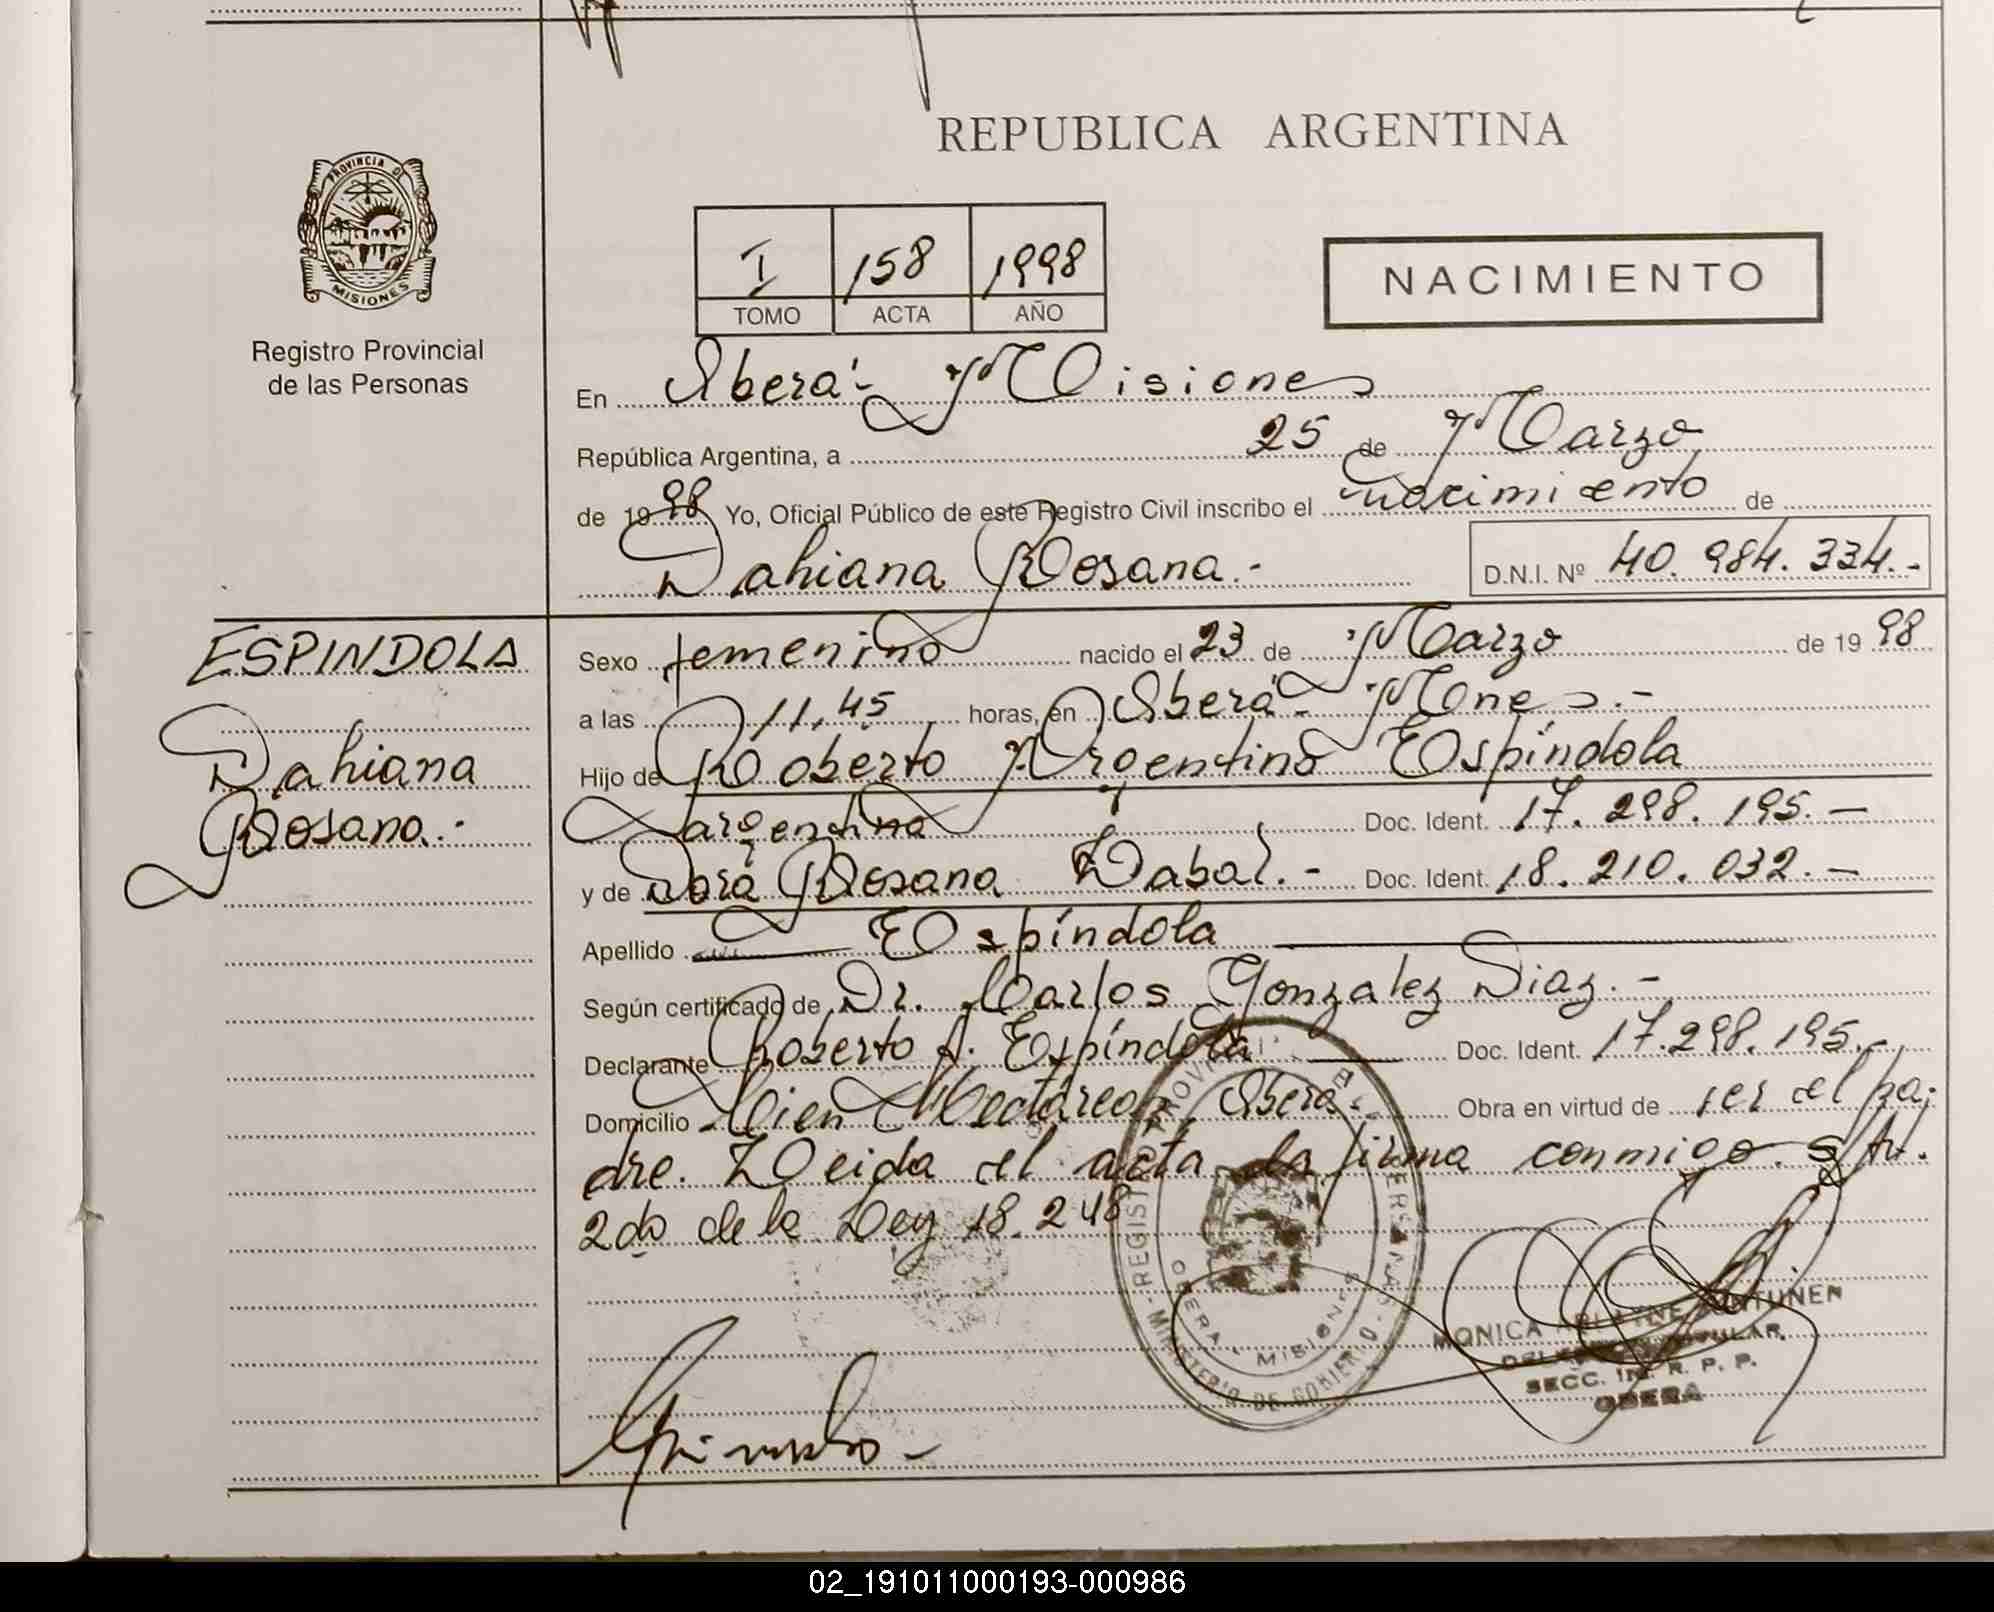 REPUBLICA ARGENTINA
PROVINCIA DE
MISIONES
Registro Provincial
de las Personas
I 158 1998
TOMO ACTA AÑO
NACIMIENTO
En Oberá - Misiones
República Argentina, a 25 de Marzo
de 1998 Yo, Oficial Público de este Registro Civil inscribo el nacimiento de
Dahiana Rosana.- D.N.I. Nº 40.984.334.-
ESPINDOLA
Dahiana
Rosana.-
Sexo femenino nacido el 23 de Marzo de 1998
a las 11,45 horas, en Oberá - Mnes.-
Hijo de Roberto Argentino Espíndola
argentina Doc. Ident. 17.298.195.-
y de Dora Rosana Dabal.- Doc. Ident. 18.210.032.-
Apellido Espíndola
Según certificado de Dr. Carlos Gonzalez Diaz.-
Declarante Roberto A. Espíndola Doc. Ident. 17.298.195.-
Domicilio Cien Hectáreas, Oberá.- Obra en virtud de ser el pa-
dre. Leida el acta la firma conmigo. s/Art.
2do de la Ley 18.248
REGISTRO PROVINCIAL PERSONAS
OBERA - MISIONES
MINISTERIO DE GOBIERNO
MONICA
SECC. R. P. P.
OBERA
02_191011000193-000986